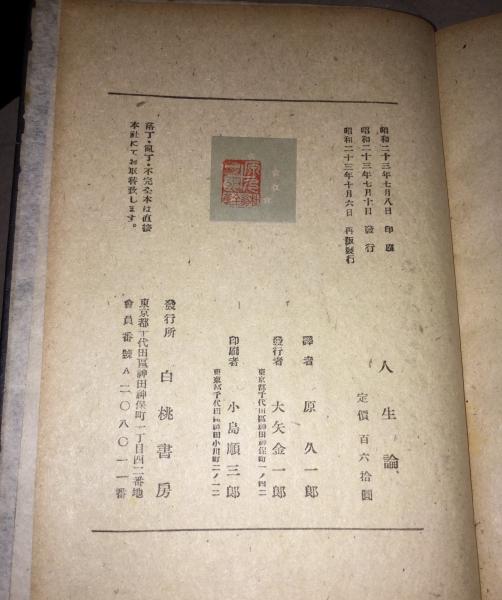 昭和二十三年七月八日 印刷
昭和二十三年七月十日 發行
昭和二十三年十月六日 再版發行
落丁・亂丁・不完全本は直接
本社にてお取替致します。
人生論
定價 百六拾圓
譯者 原久一郎
發行者 大矢金一郎
東京都千代田區神田神保町一ノ四二
印刷者 小島順三郎
東京都千代田區神田小川町二ノ一二
發行所 白桃書房
東京都千代田區神田神保町一丁目四二番地
會員番號A二〇八〇一一番